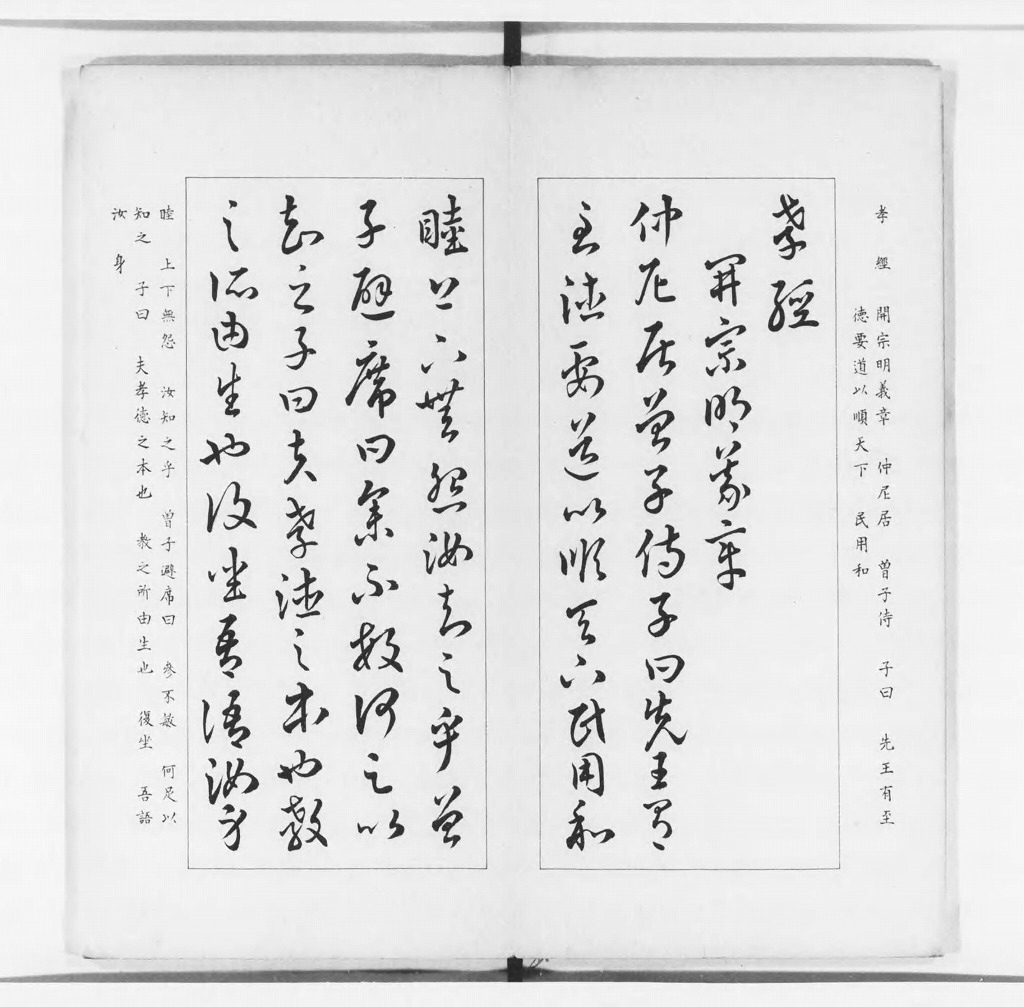 孝經 開宗明義章 仲尼居 曽子侍 子曰 先王有至
徳要道以順天下 民用和
孝經
開宗明義章
仲尼居曽子侍子曰先王有
至徳要道以順天下民用和
睦上下無怨汝知之乎曽
子避席曰參不敏何足以
知之子曰夫孝徳之本也教
之所由生也復坐吾語汝身
睦 上下無怨 汝知之乎 曽子避席曰 參不敏 何足以
知之 子曰 夫孝徳之本也 教之所由生也 復坐 吾語
汝 身